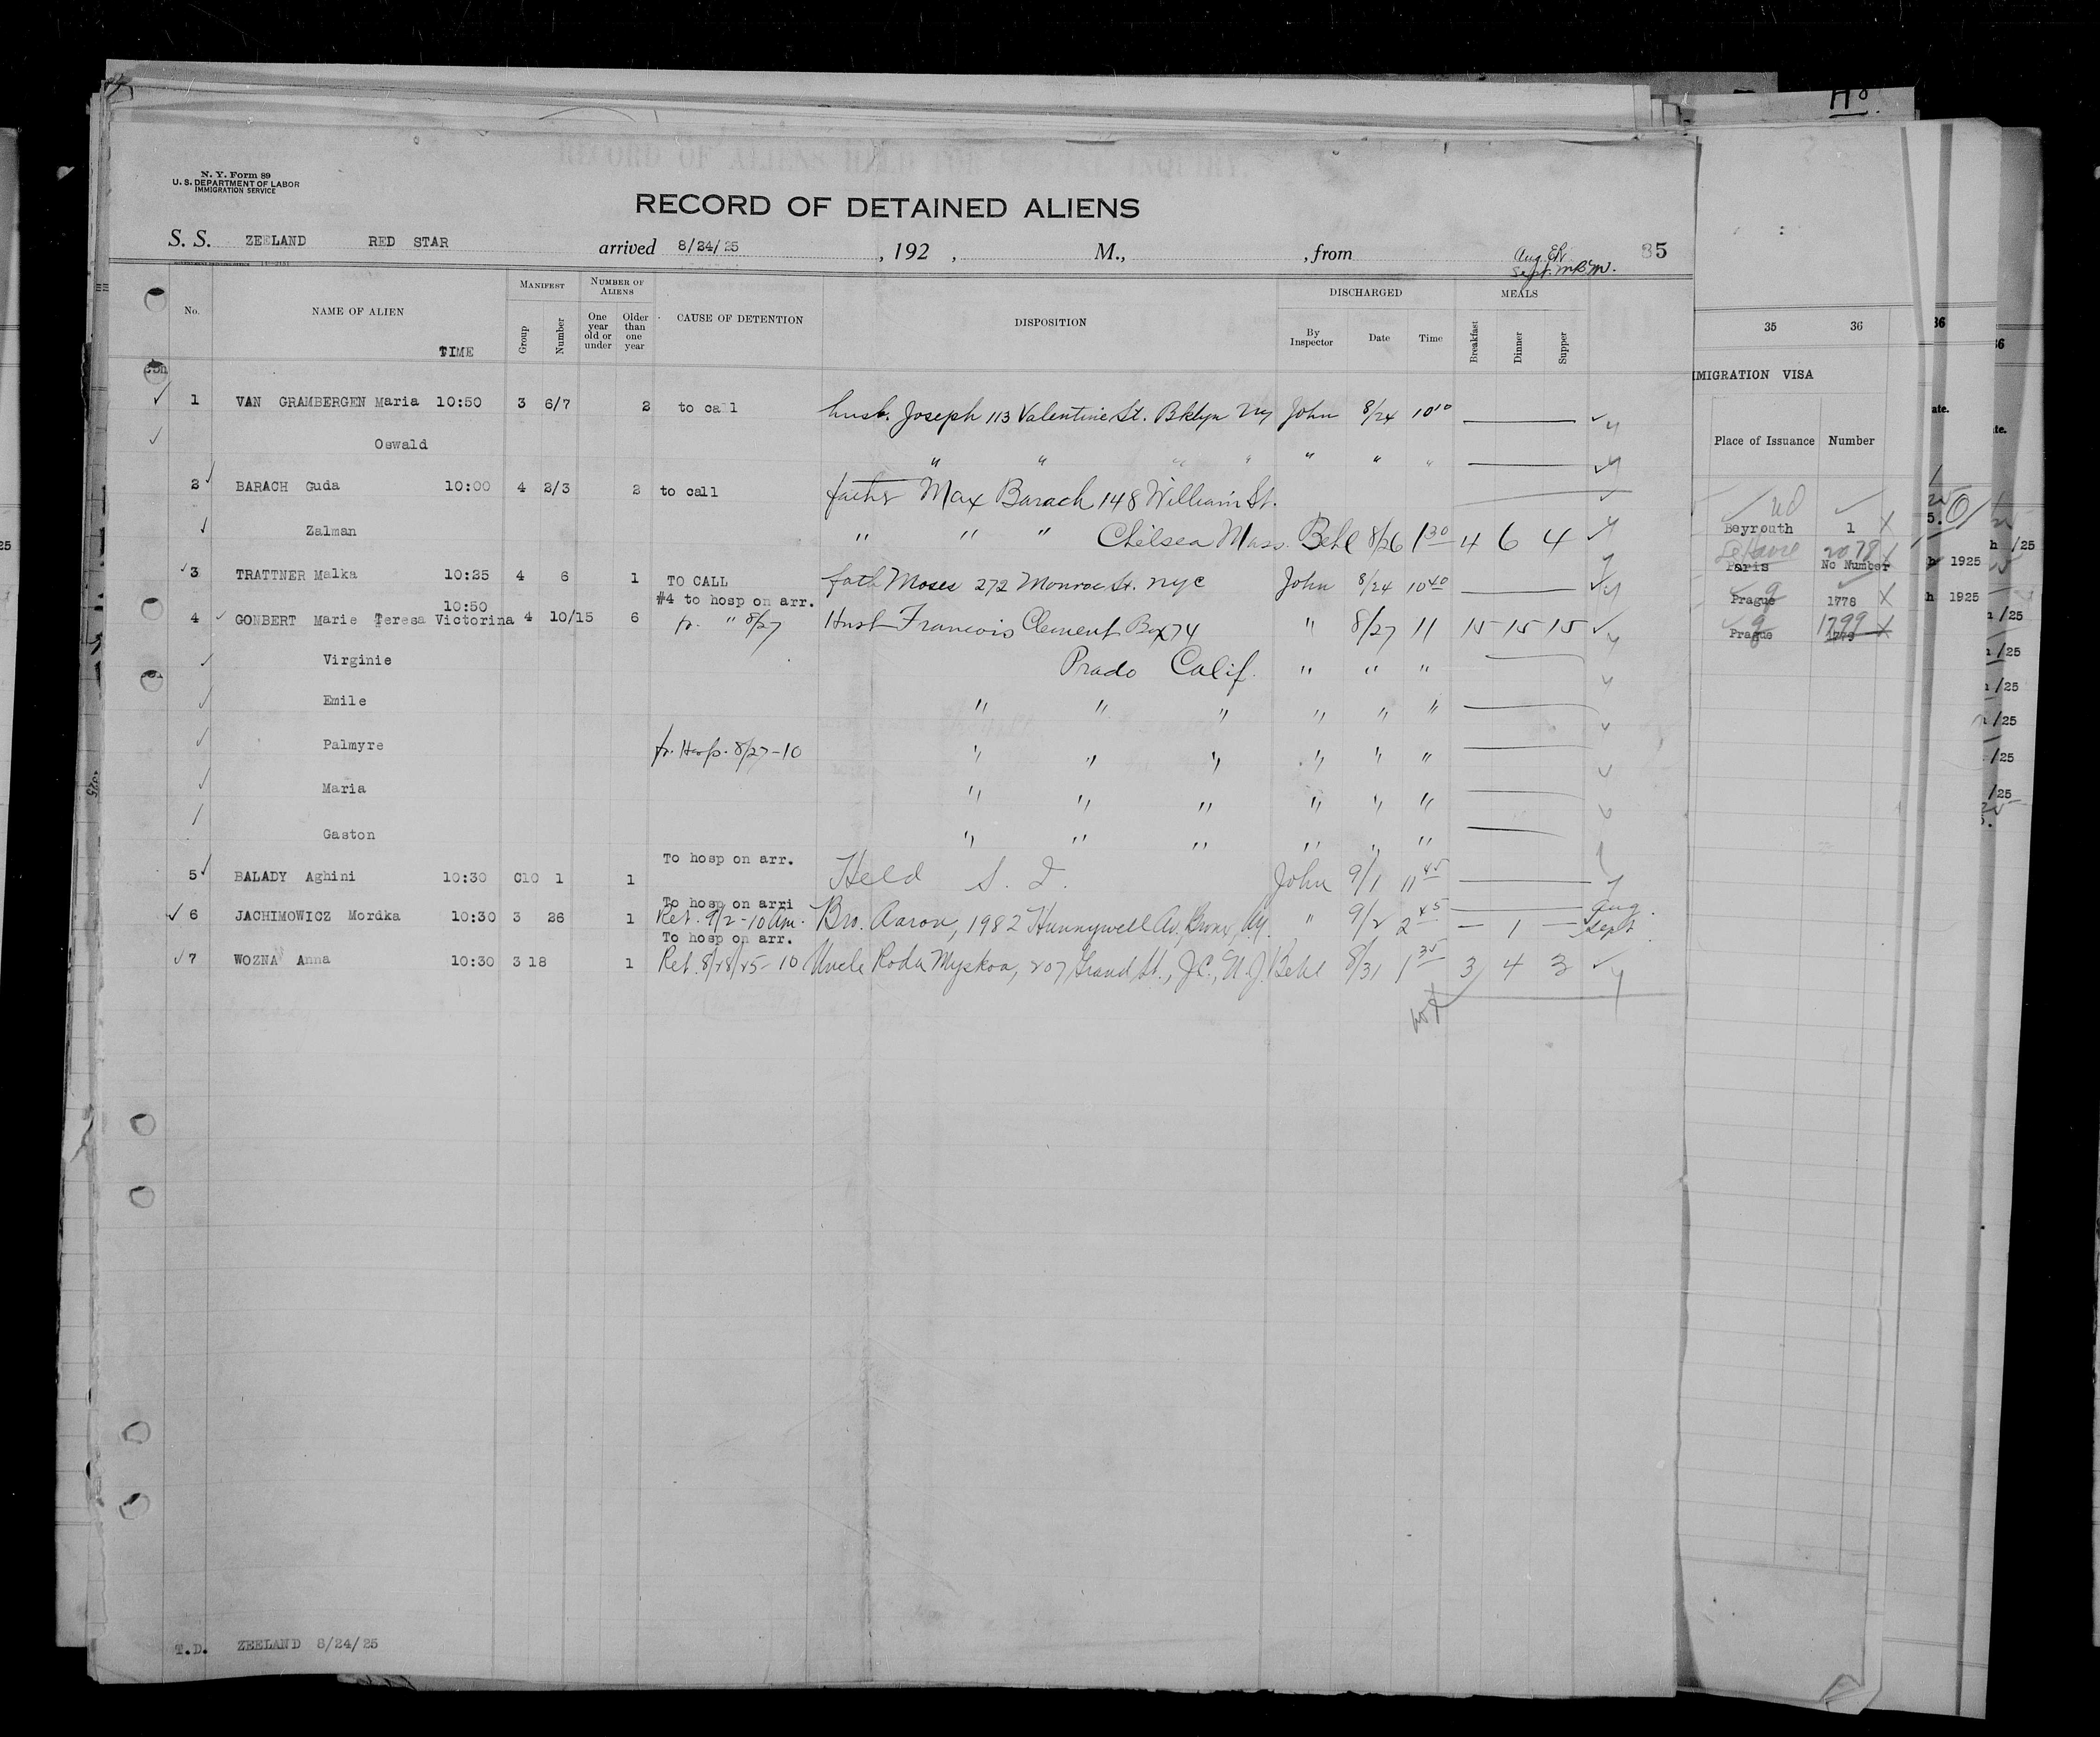 N. Y. Form 89
U. S. DEPARTMENT OF LABOR
IMMIGRATION SERVICE
RECORD OF DETAINED ALIENS
S. S. ZEELAND RED STAR arrived 8/24/25 , 192 , M., , from 35
MANIFEST NUMBER OF ALIENS DISCHARGED MEALS
No. NAME OF ALIEN TIME Group Number One year old or under Older than one year CAUSE OF DETENTION DISPOSITION By Inspector Date Time Breakfast Dinner Supper
1 VAN GRAMBERGEN Maria 10:50 3 6/7 2 to call husb. Joseph 113 Valentine St. Bklyn Ny John 8/24 10 10
Oswald " " " " " " "
2 BARACH Guda 10:00 4 2/3 2 to call father Max Barach 148 William St.
Zalman " " " Chelsea Mass. Behl 8/26 1 30 4 6 4
3 TRATTNER Malka 10:25 4 6 1 TO CALL fath Moses 272 Monroe St. nyc John 8/24 10 40
#4 to hosp on arr.
10:50
4 GONBERT Marie Teresa Victorina 4 10/15 6 fr. " 8/27 Husb Francois Clement Box 74 " 8/27 11 15 15 15
Virginie Prado Calif. " " "
Emile " " " " " "
Palmyre fr. Hosp. 8/27-10 " " " " " "
Maria " " " " " "
Gaston " " " " " "
To hosp on arr.
5 BALADY Aghini 10:30 C10 1 1 Held S. I. John 9/1 11 45
To hosp on arri
6 JACHIMOWICZ Mordka 10:30 3 26 1 Ret. 9/2-10 am. Bro. Aaron, 1982 Hunnywell Av, Bronx, Ny. " 9/2 2 45 — 1 — Aug. Sept
To hosp on arr.
7 WOZNA Anna 10:30 3 18 1 Ret. 8/28/25-10 Uncle Roda Myskoa, 207 Grand St., J.C., N.J. Behl 8/31 1 35 3 4 3
T.D. ZEELAND 8/24/25
35 36
IMIGRATION VISA
Place of Issuance Number
Beyrouth 1
Le Havre 2078
Paris No Number
Prague 1778
Prague 1799
1925
1925